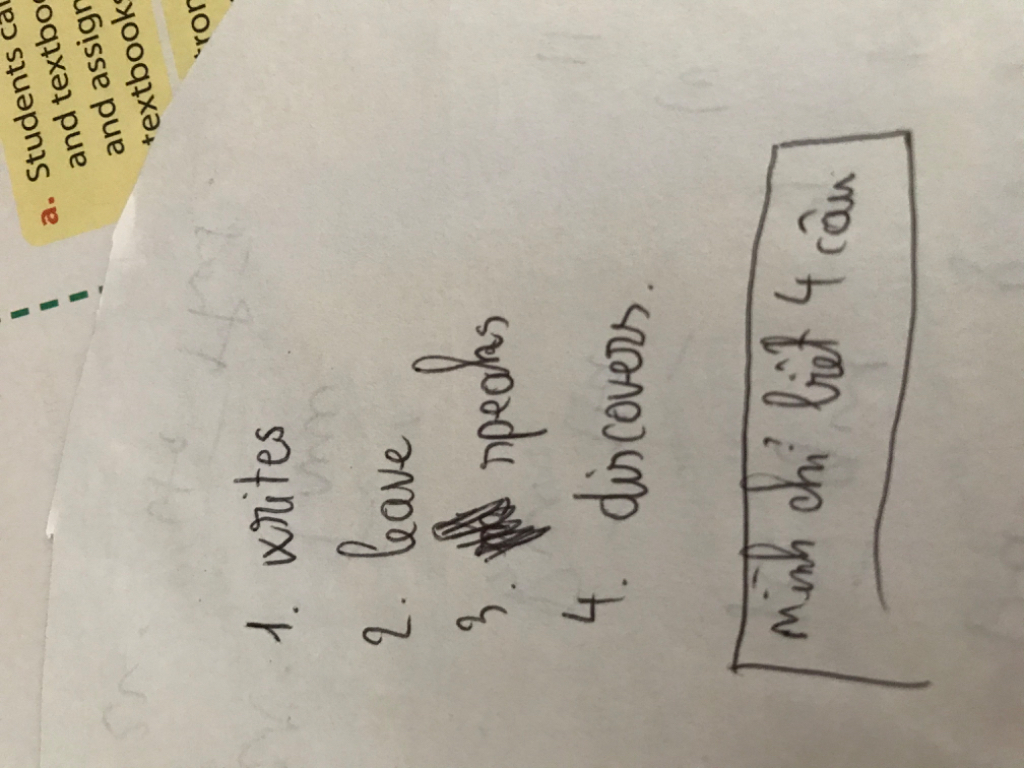 a. Students ca
and textboo
and assign
textbooks
ron
1. writes
2. leave
3. speaks
4. discovers.
mình chỉ biết 4 câu